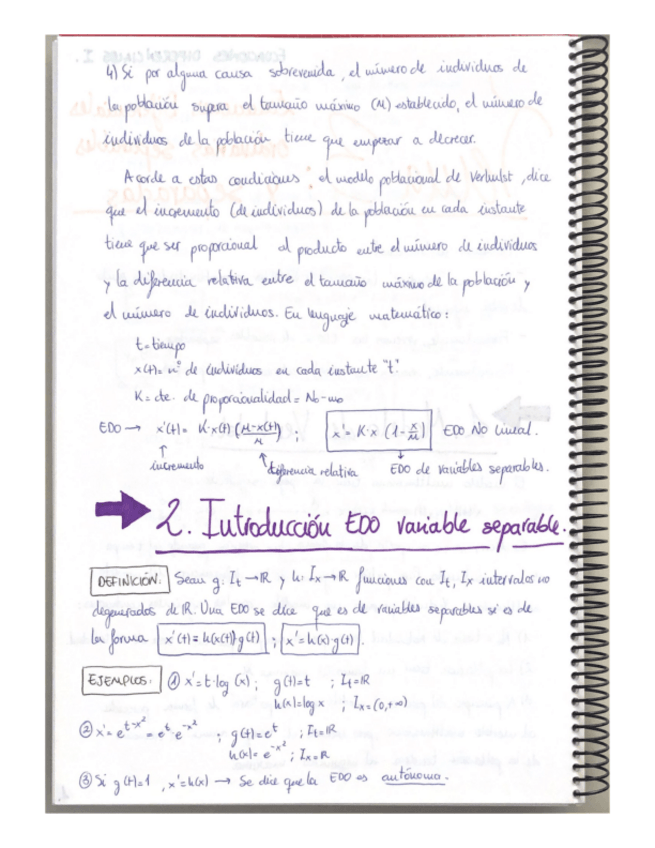 4) Si por alguna causa sobrevenida, el número de individuos de
la población supera el tamaño máximo (M) establecido, el número de
individuos de la población tiene que empezar a decrecer.
Acorde a estas condiciones: el modelo poblacional de Verhulst, dice
que el incremento (de individuos) de la población en cada instante
tiene que ser proporcional al producto entre el número de individuos
y la diferencia relativa entre el tamaño máximo de la población y
el número de individuos. En lenguaje matemático:
t = tiempo
x(t) = nº de individuos en cada instante "t".
K = cte. de proporcionalidad = No-mo
EDO → x'(t) = K·x(t) (M-x(t)/M) ; x' = K·x (1-x/M) EDO No lineal.
↑ incremento ↑ diferencia relativa ↓ EDO de variables separables.
2. Introducción EDO variable separable.
DEFINICIÓN: Sean g: It → ℝ y h: Ix → ℝ funciones con It, Ix intervalos no
degenerados de ℝ. Una EDO se dice que es de variables separables si es de
la forma x'(t) = h(x(t)) g(t) ; x' = h(x) g(t).
EJEMPLOS: ① x' = t·log(x) ; g(t) = t ; It = ℝ
h(x) = log x ; Ix = (0,+∞)
② x' = e^(t-x²) = e^t·e^(-x²) ; g(t) = e^t ; It = ℝ
h(x) = e^(-x²) ; Ix = ℝ
③ Si g(t) = 1, x' = h(x) → Se dice que la EDO es autónoma.